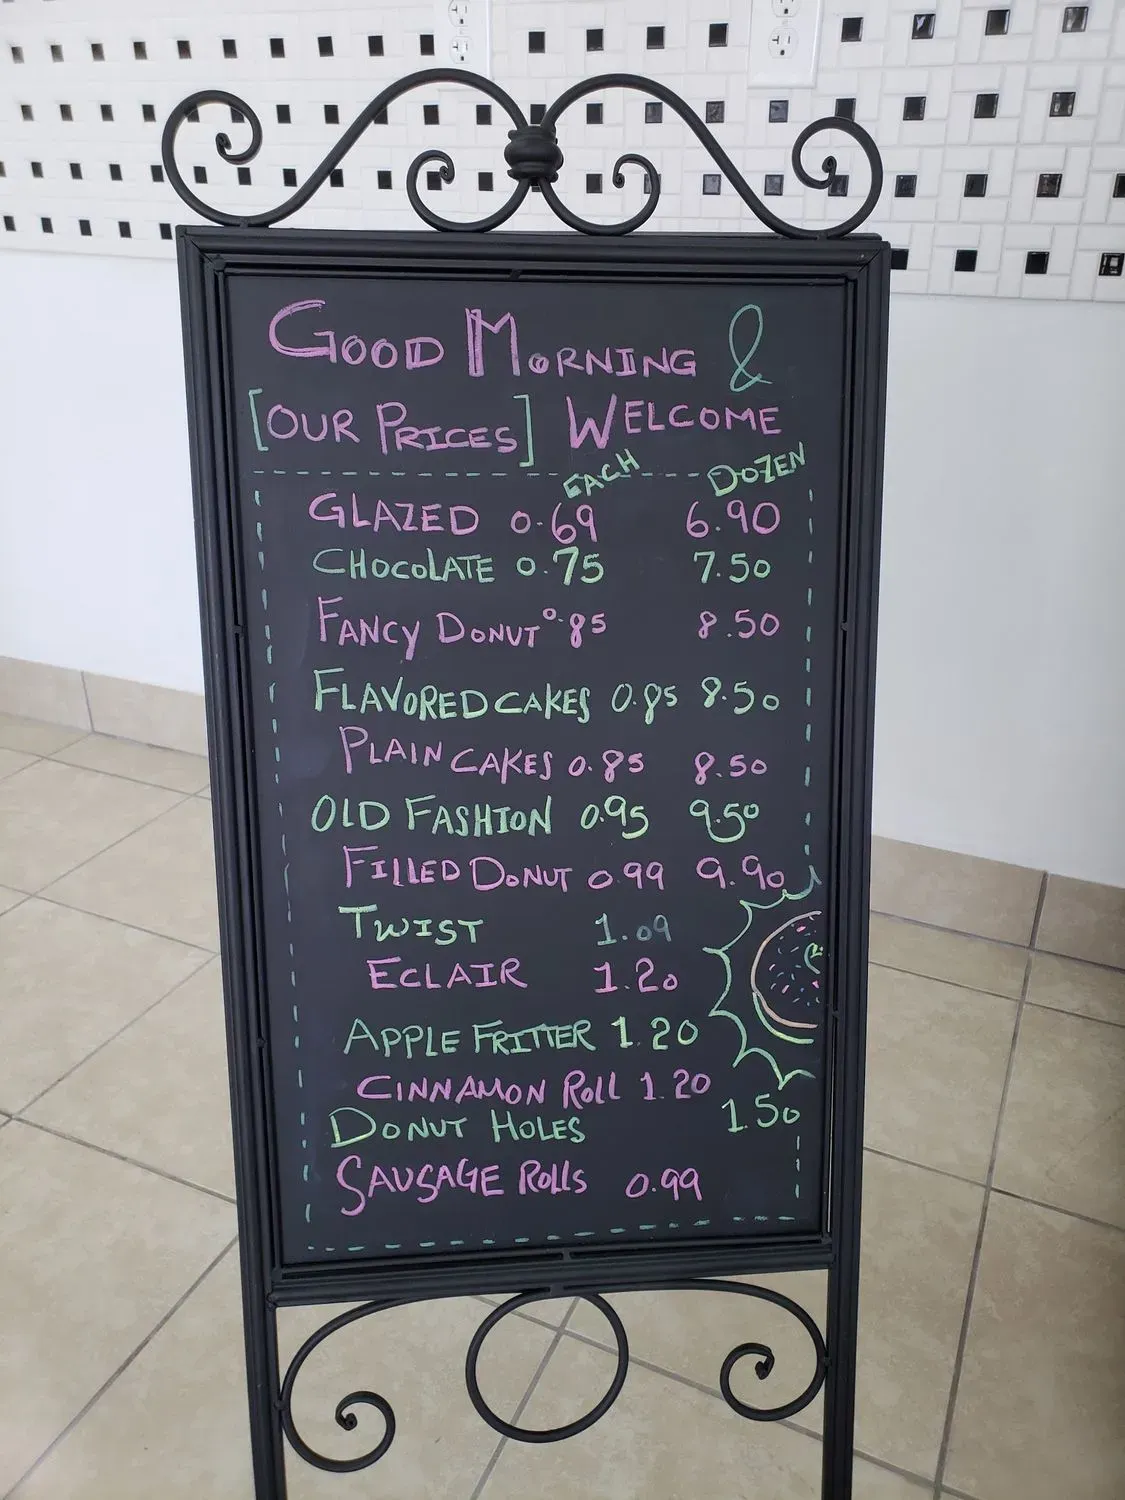 GOOD MORNING &
[OUR PRICES] WELCOME
EACH DOZEN
GLAZED 0.69 6.90
CHOCOLATE 0.75 7.50
FANCY DONUT 0.85 8.50
FLAVORED CAKES 0.85 8.50
PLAIN CAKES 0.85 8.50
OLD FASHION 0.95 9.50
FILLED DONUT 0.99 9.90
TWIST 1.09
ECLAIR 1.20
APPLE FRITTER 1.20
CINNAMON ROLL 1.20
DONUT HOLES 1.50
SAUSAGE ROLLS 0.99